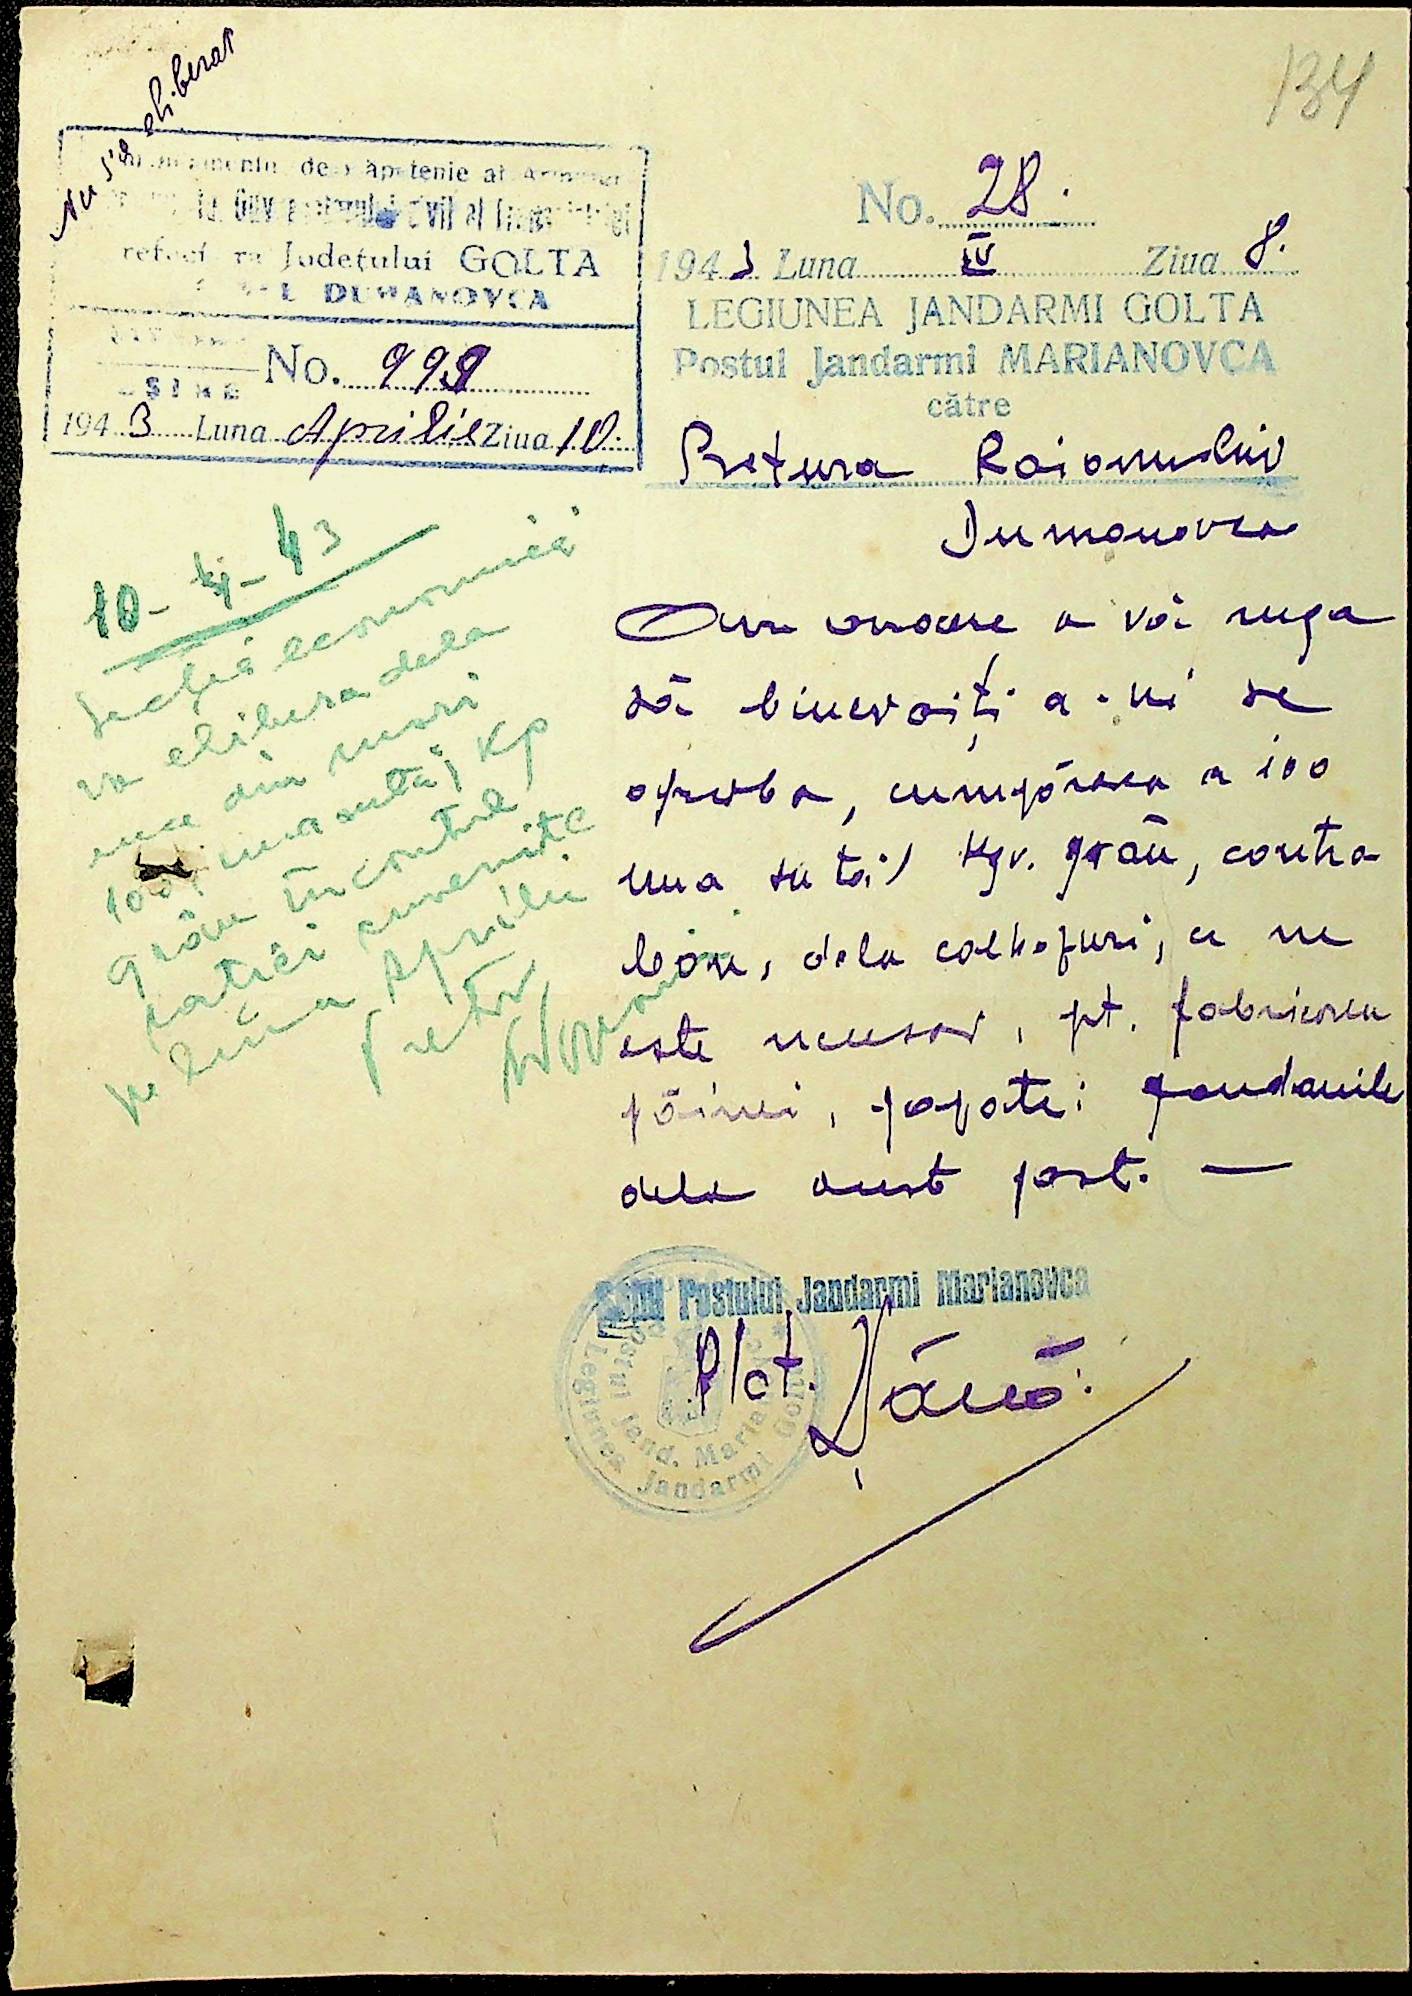 134
Nu s'a eliberat
Guv Civil al
Judeţului GOLTA
DUMANOVCA
No. 999
1943 Luna Aprilie Ziua 10.
No. 28.
1943 Luna IV Ziua 8.
LEGIUNEA JANDARMI GOLTA
Postul Jandarmi MARIANOVCA
către
Pretura Raionului
Dumanovca
Am onoare a vă ruga
să binevoiţi a ni se
aproba, cumpărarea a 100
una sută) kgr. grâu, contra
bon, dela colhozuri, ce ne
este necesar, pt. fabricarea
pâinei, popotei jandarmilor
dela acest post. —
10-4-43
Secţia economică
va elibera dela
una din mori
100 (una sută) Kg
grâu în contul
raţiei cuvenite
pe luna Aprilie
Pretor,
Şeful Postului Jandarmi Marianovca
Plot.
Legiunea Jandarmi Golta
Postul Jand. Marianovca